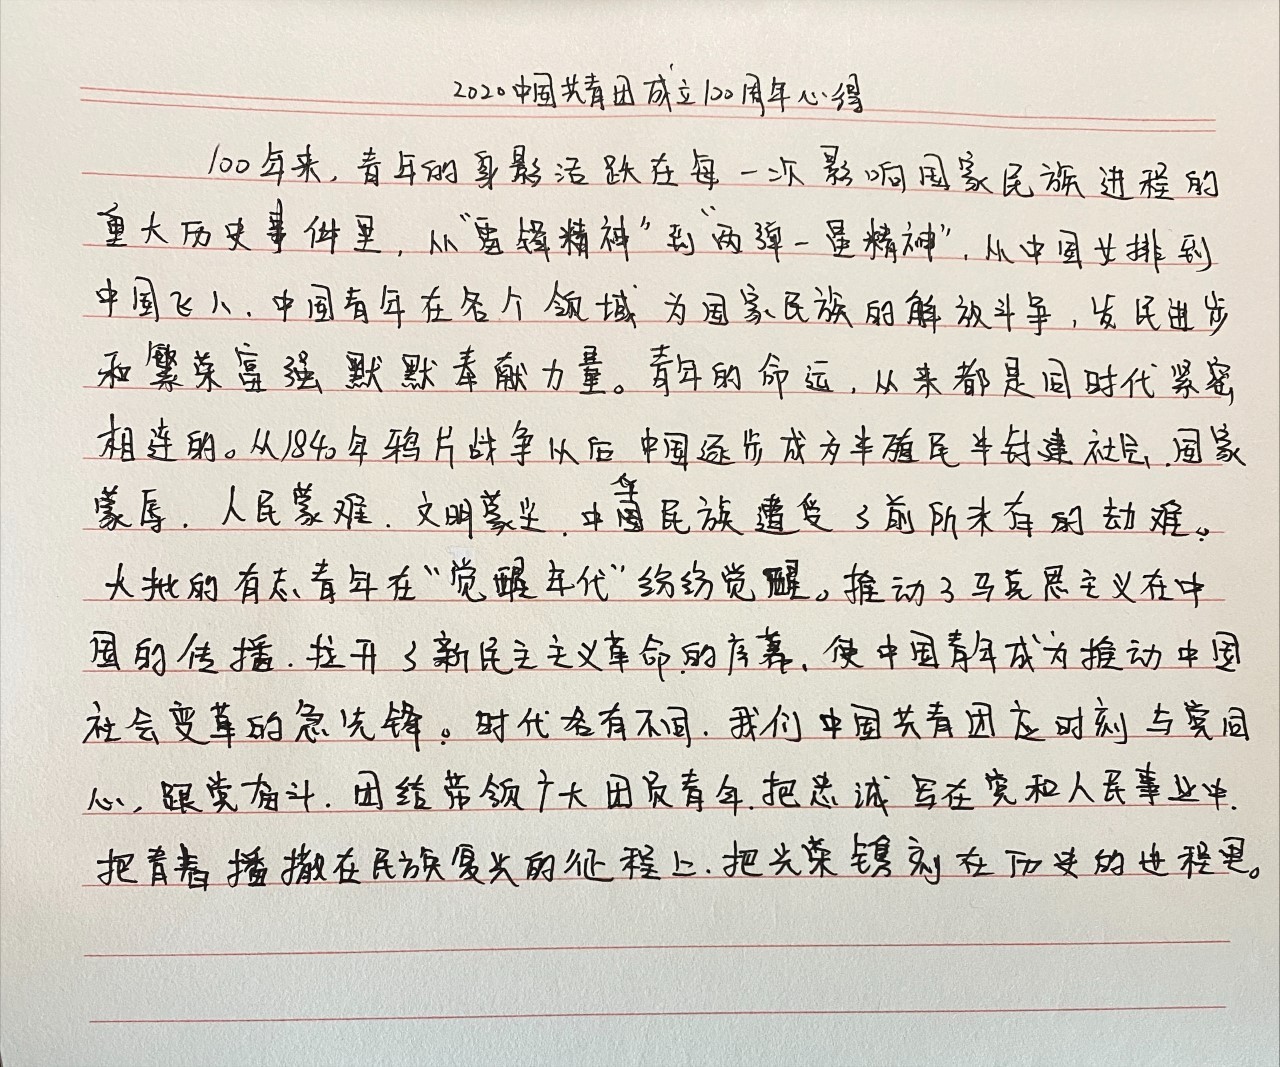 2020中国共青团成立100周年心得
100年来,青年的身影活跃在每一次影响国家民族进程的
重大历史事件里,从“雷锋精神”到“两弹一星精神”,从中国女排到
中国飞人,中国青年在各个领域为国家民族的解放斗争,发民进步
和繁荣富强默默奉献力量。青年的命运,从来都是同时代紧密
相连的。从1840年鸦片战争以后中国逐步成为半殖民半封建社会,国家
蒙辱,人民蒙难,文明蒙尘,中华民族遭受了前所未有的劫难。
大批的有志青年在“觉醒年代”纷纷觉醒。推动了马克思主义在中
国的传播,拉开了新民主主义革命的序幕,使中国青年成为推动中国
社会变革的急先锋。时代各有不同,我们中国共青团应时刻与党同
心,跟党奋斗,团结带领广大团员青年,把忠诚写在党和人民事业中,
把青春播撒在民族复兴的征程上,把光荣镌刻在历史的进程里。